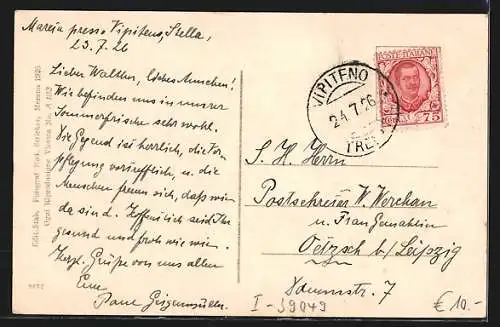 Mareia presso Vipiteno, Stella,
23.7.26
Lieber Walther, liebes Annchen!
Wir befinden uns in unserer
Sommerfrische sehr wohl.
Die Gegend ist herrlich, die Ver-
pflegung vortrefflich, u. die
Menschen freuen sich, daß wir
da sind. Hoffentlich seid Ihr
gesund und froh wie wir.
Herzl. Grüße von uns allen
Eure
Edit. Stab. Fotograf Fisk. Merano 1925
Ogni Riproduzione Vietata No. A 182
POSTE ITALIANE
CENT. 75
VIPITENO
24.7.26
S. H. Herrn
Postschreiner W. Werchan
u. Frau Gemahlin
Oetzsch b/Leipzig
7
I-39049
€ 10.-